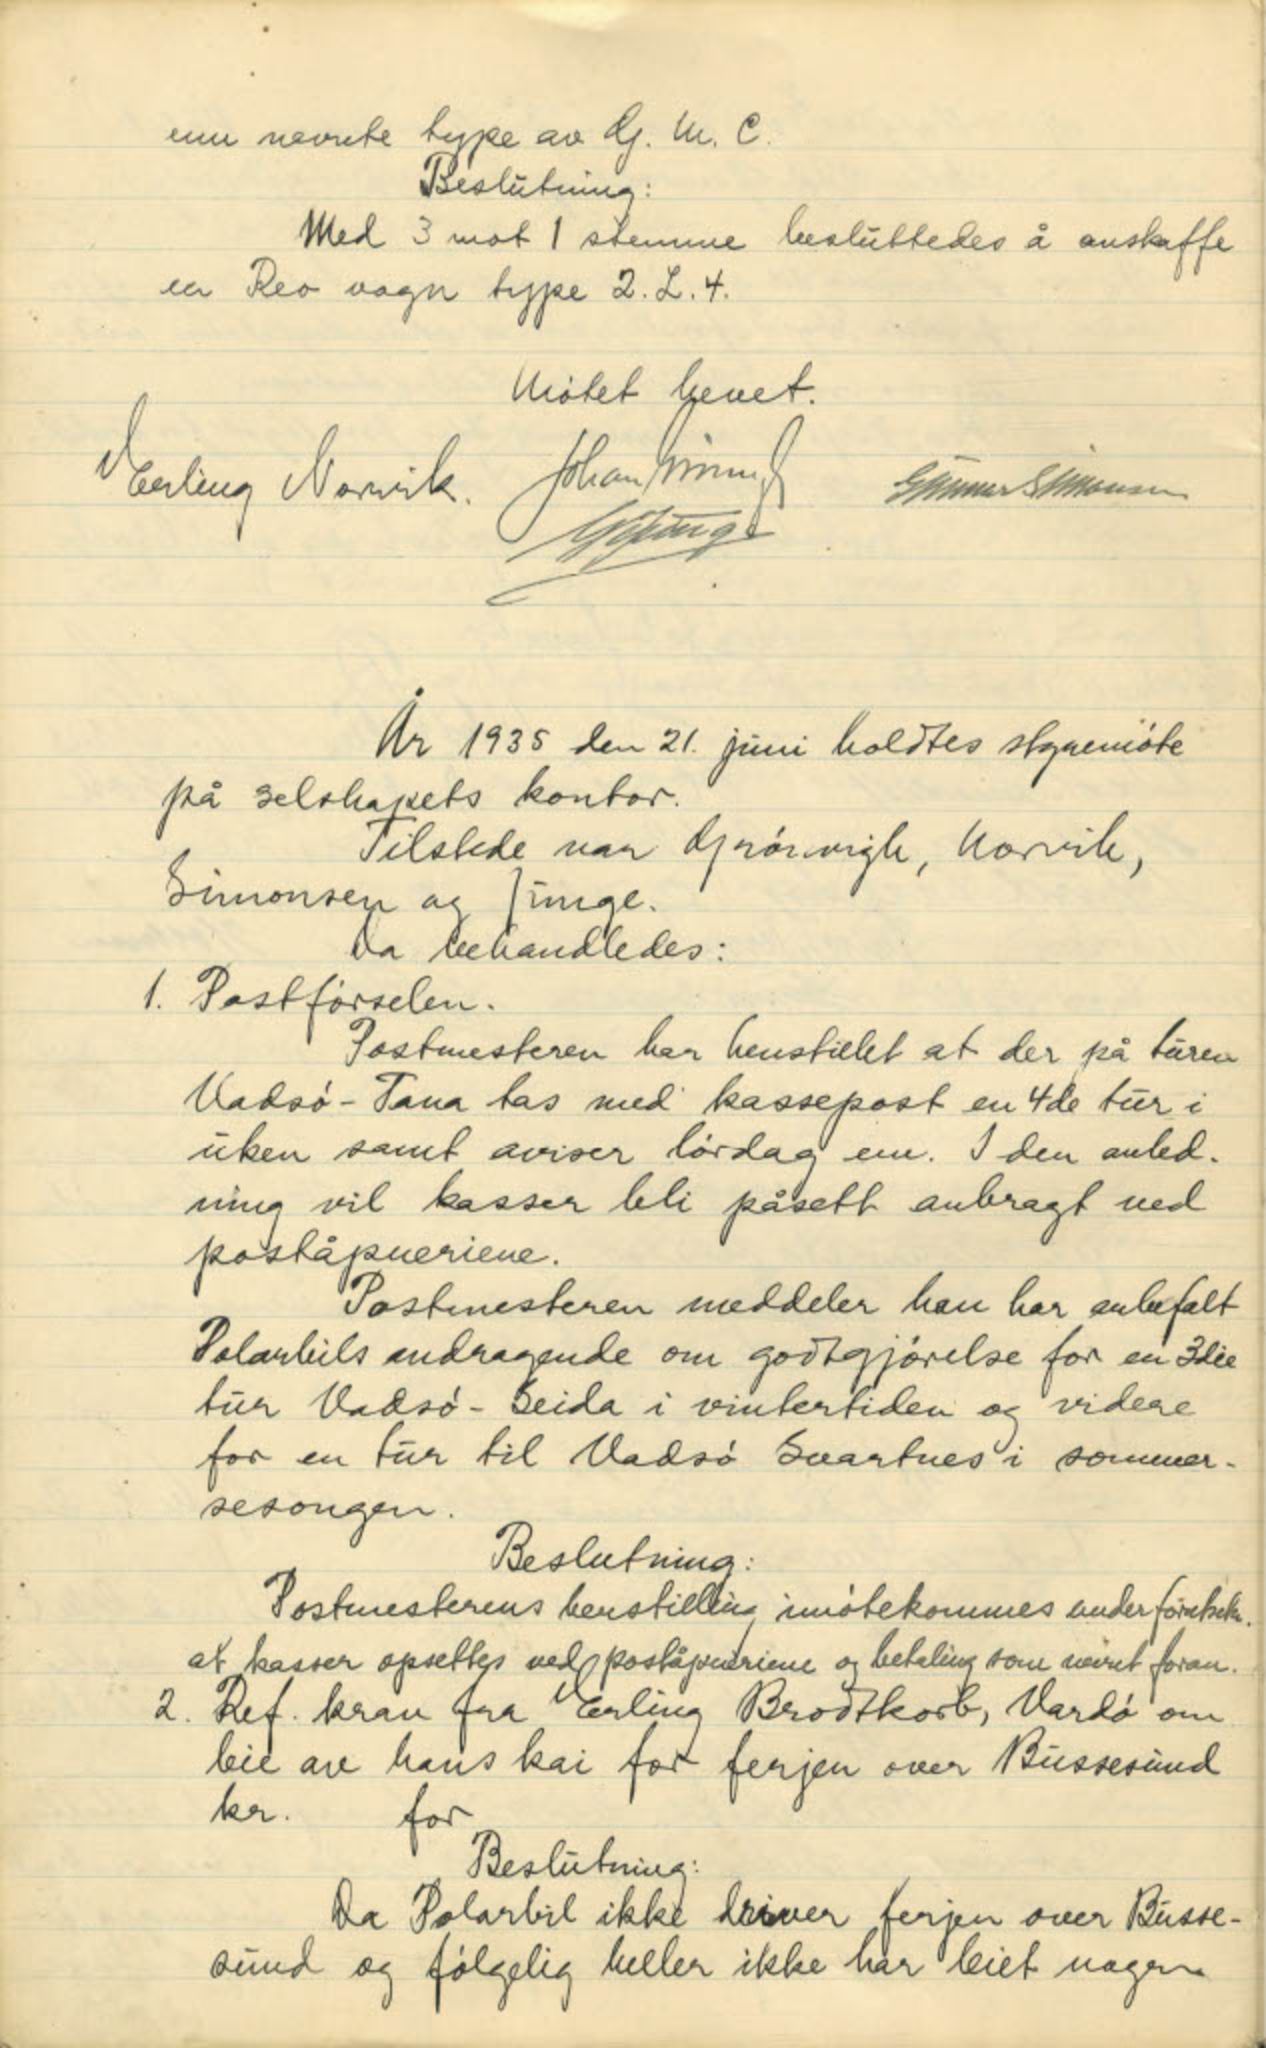 enn nevnte type av G. M. C.
Beslutning:
Med 3 mot 1 stemme besluttedes å anskaffe
en Reo vogn type 2. L. 4.
Møtet hevet.
Erling Norvik. Johan Gunnar Simonsen
År 1935 den 21. juni holdtes styremøte
på selskapets kontor.
Tilstede var Grönvigh, Norvik,
Simonsen og Junge.
Da behandledes:
1. Postförselen.
Postmesteren har henstillet at der på turen
Vadsö - Tana tas med kassepost en 4de tur i
uken samt aviser lördag em. I den anled-
ning vil kasser bli påsett anbragt ved
poståpneriene.
Postmesteren meddeler han har anbefalt
Polarbils andragende om godtgjörelse for en 3die
tur Vadsö - Seida i vintertiden og videre
for en tur til Vadsö Svartnes i sommer-
sesongen.
Beslutning:
Postmesterens henstilling imötekommes under
at kasser opsettes ved poståpneriene og betaling som nevnt foran.
2. Ref. krav fra Erling Brodtkorb, Vardö om
leie av hans kai for ferjen over Bussesund
kr. for
Beslutning:
Da Polarbil ikke driver ferjen over Busse-
sund og fölgelig heller ikke har leiet nogen